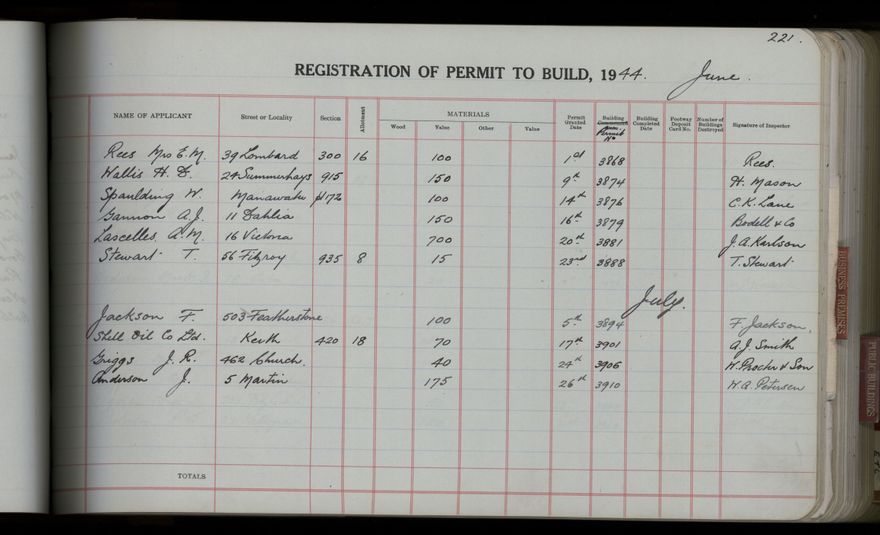 221.
REGISTRATION OF PERMIT TO BUILD, 1944. June.
NAME OF APPLICANT Street or Locality Section Allotment MATERIALS Wood Value Other Value Permit Granted Date Building Permit No Building Completed Date Footway Deposit Card No. Number of Buildings Destroyed Signature of Inspector
Rees Mrs E. M. 39 Lombard 300 16 100 1st 3868 Rees.
Wallis H. 24 Summerhays 915 150 9th 3874 H. Mason
Spaulding W. Manawatu pt 172 100 14th 3876 C. K. Lane
Gannon A. J. 11 Dahlia 150 16th 3879 Bodell & Co
Lascelles A. M. 16 Victoria 700 20th 3881 J. A. Karlson
Stewart T. 56 Fitzroy 935 8 15 23rd 3888 T. Stewart
July.
Jackson F. 503 Featherstone 100 5th 3894 F Jackson.
Shell Oil Co Ltd. Keith 420 18 70 17th 3901 A. J. Smith
Griggs J. R. 462 Church. 40 24th 3906 W. Procter & Son
Anderson J. 5 Martin 175 26th 3910 W. A. Petersen
TOTALS
BUSINESS PREMISES
PUBLIC BUILDINGS